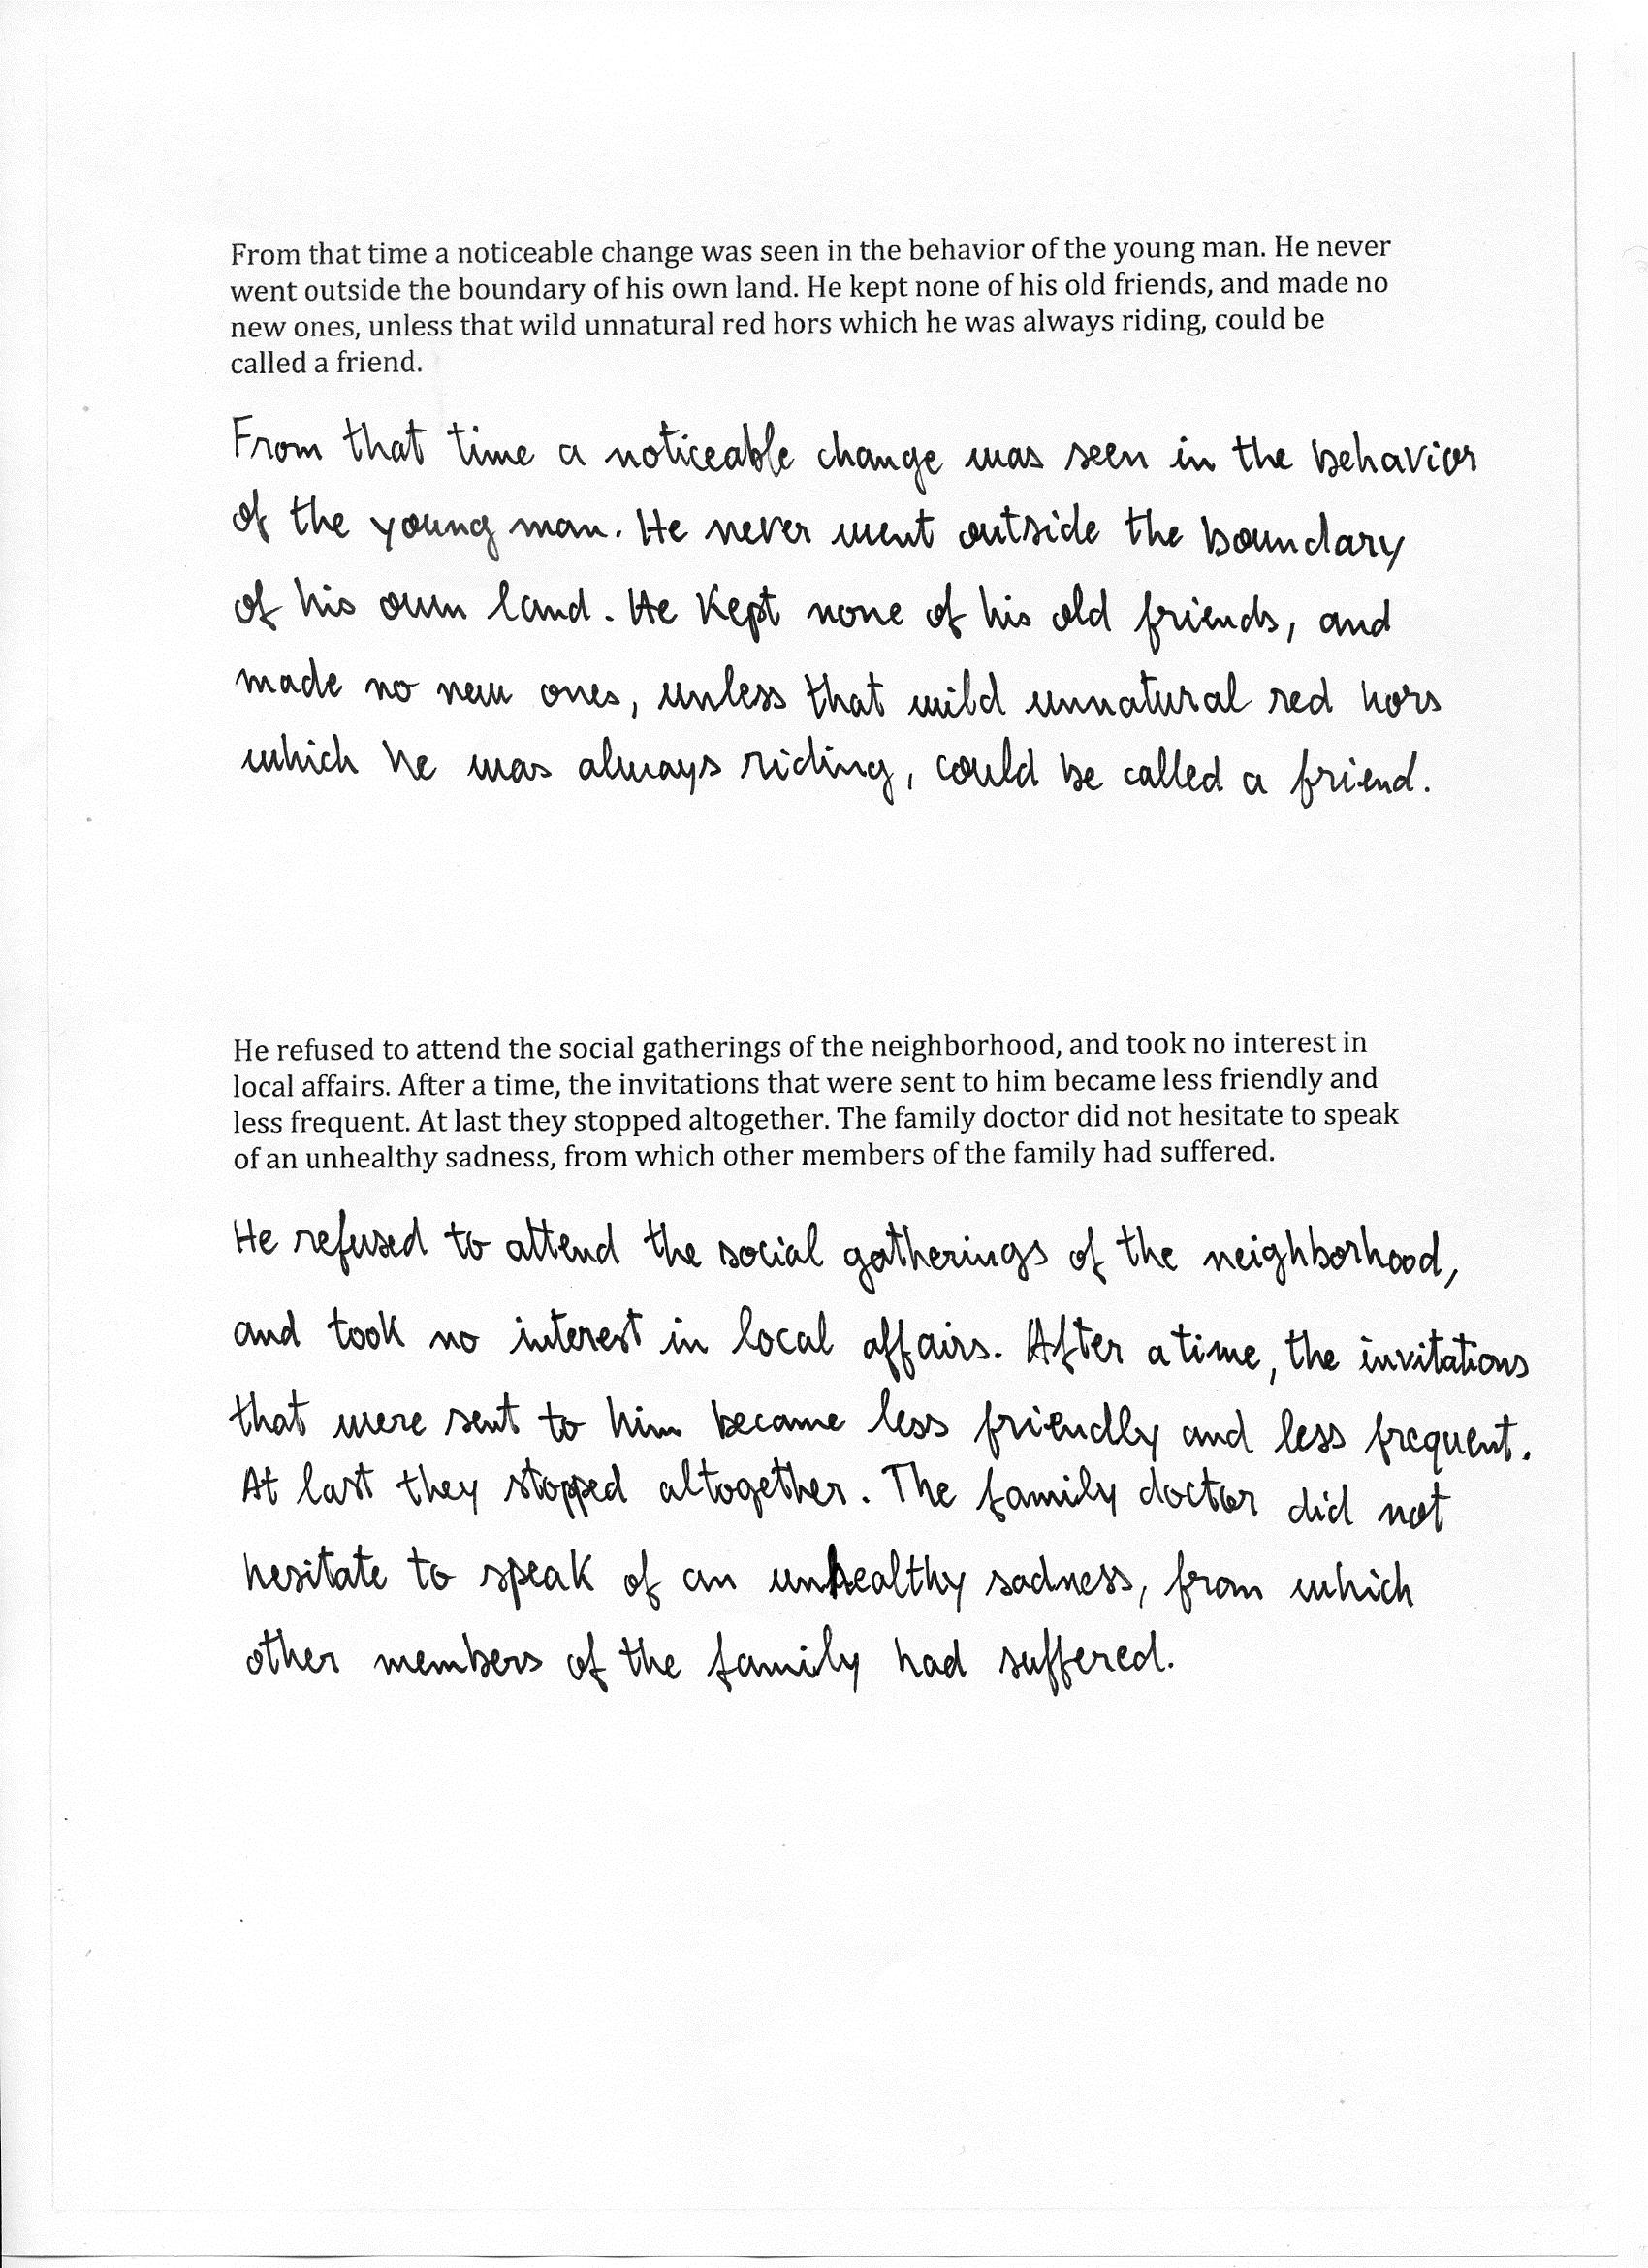 From that time a noticeable change was seen in the behavior of the young man. He never
went outside the boundary of his own land. He kept none of his old friends, and made no
new ones, unless that wild unnatural red hors which he was always riding, could be
called a friend.
From that time a noticeable change was seen in the behavior
of the young man. He never went outside the boundary
of his own land. He kept none of his old friends, and
made no new ones, unless that wild unnatural red hors
which he was always riding, could be called a friend.
He refused to attend the social gatherings of the neighborhood, and took no interest in
local affairs. After a time, the invitations that were sent to him became less friendly and
less frequent. At last they stopped altogether. The family doctor did not hesitate to speak
of an unhealthy sadness, from which other members of the family had suffered.
He refused to attend the social gatherings of the neighborhood,
and took no interest in local affairs. After a time, the invitations
that were sent to him became less friendly and less frequent.
At last they stopped altogether. The family doctor did not
hesitate to speak of an unhealthy sadness, from which
other members of the family had suffered.